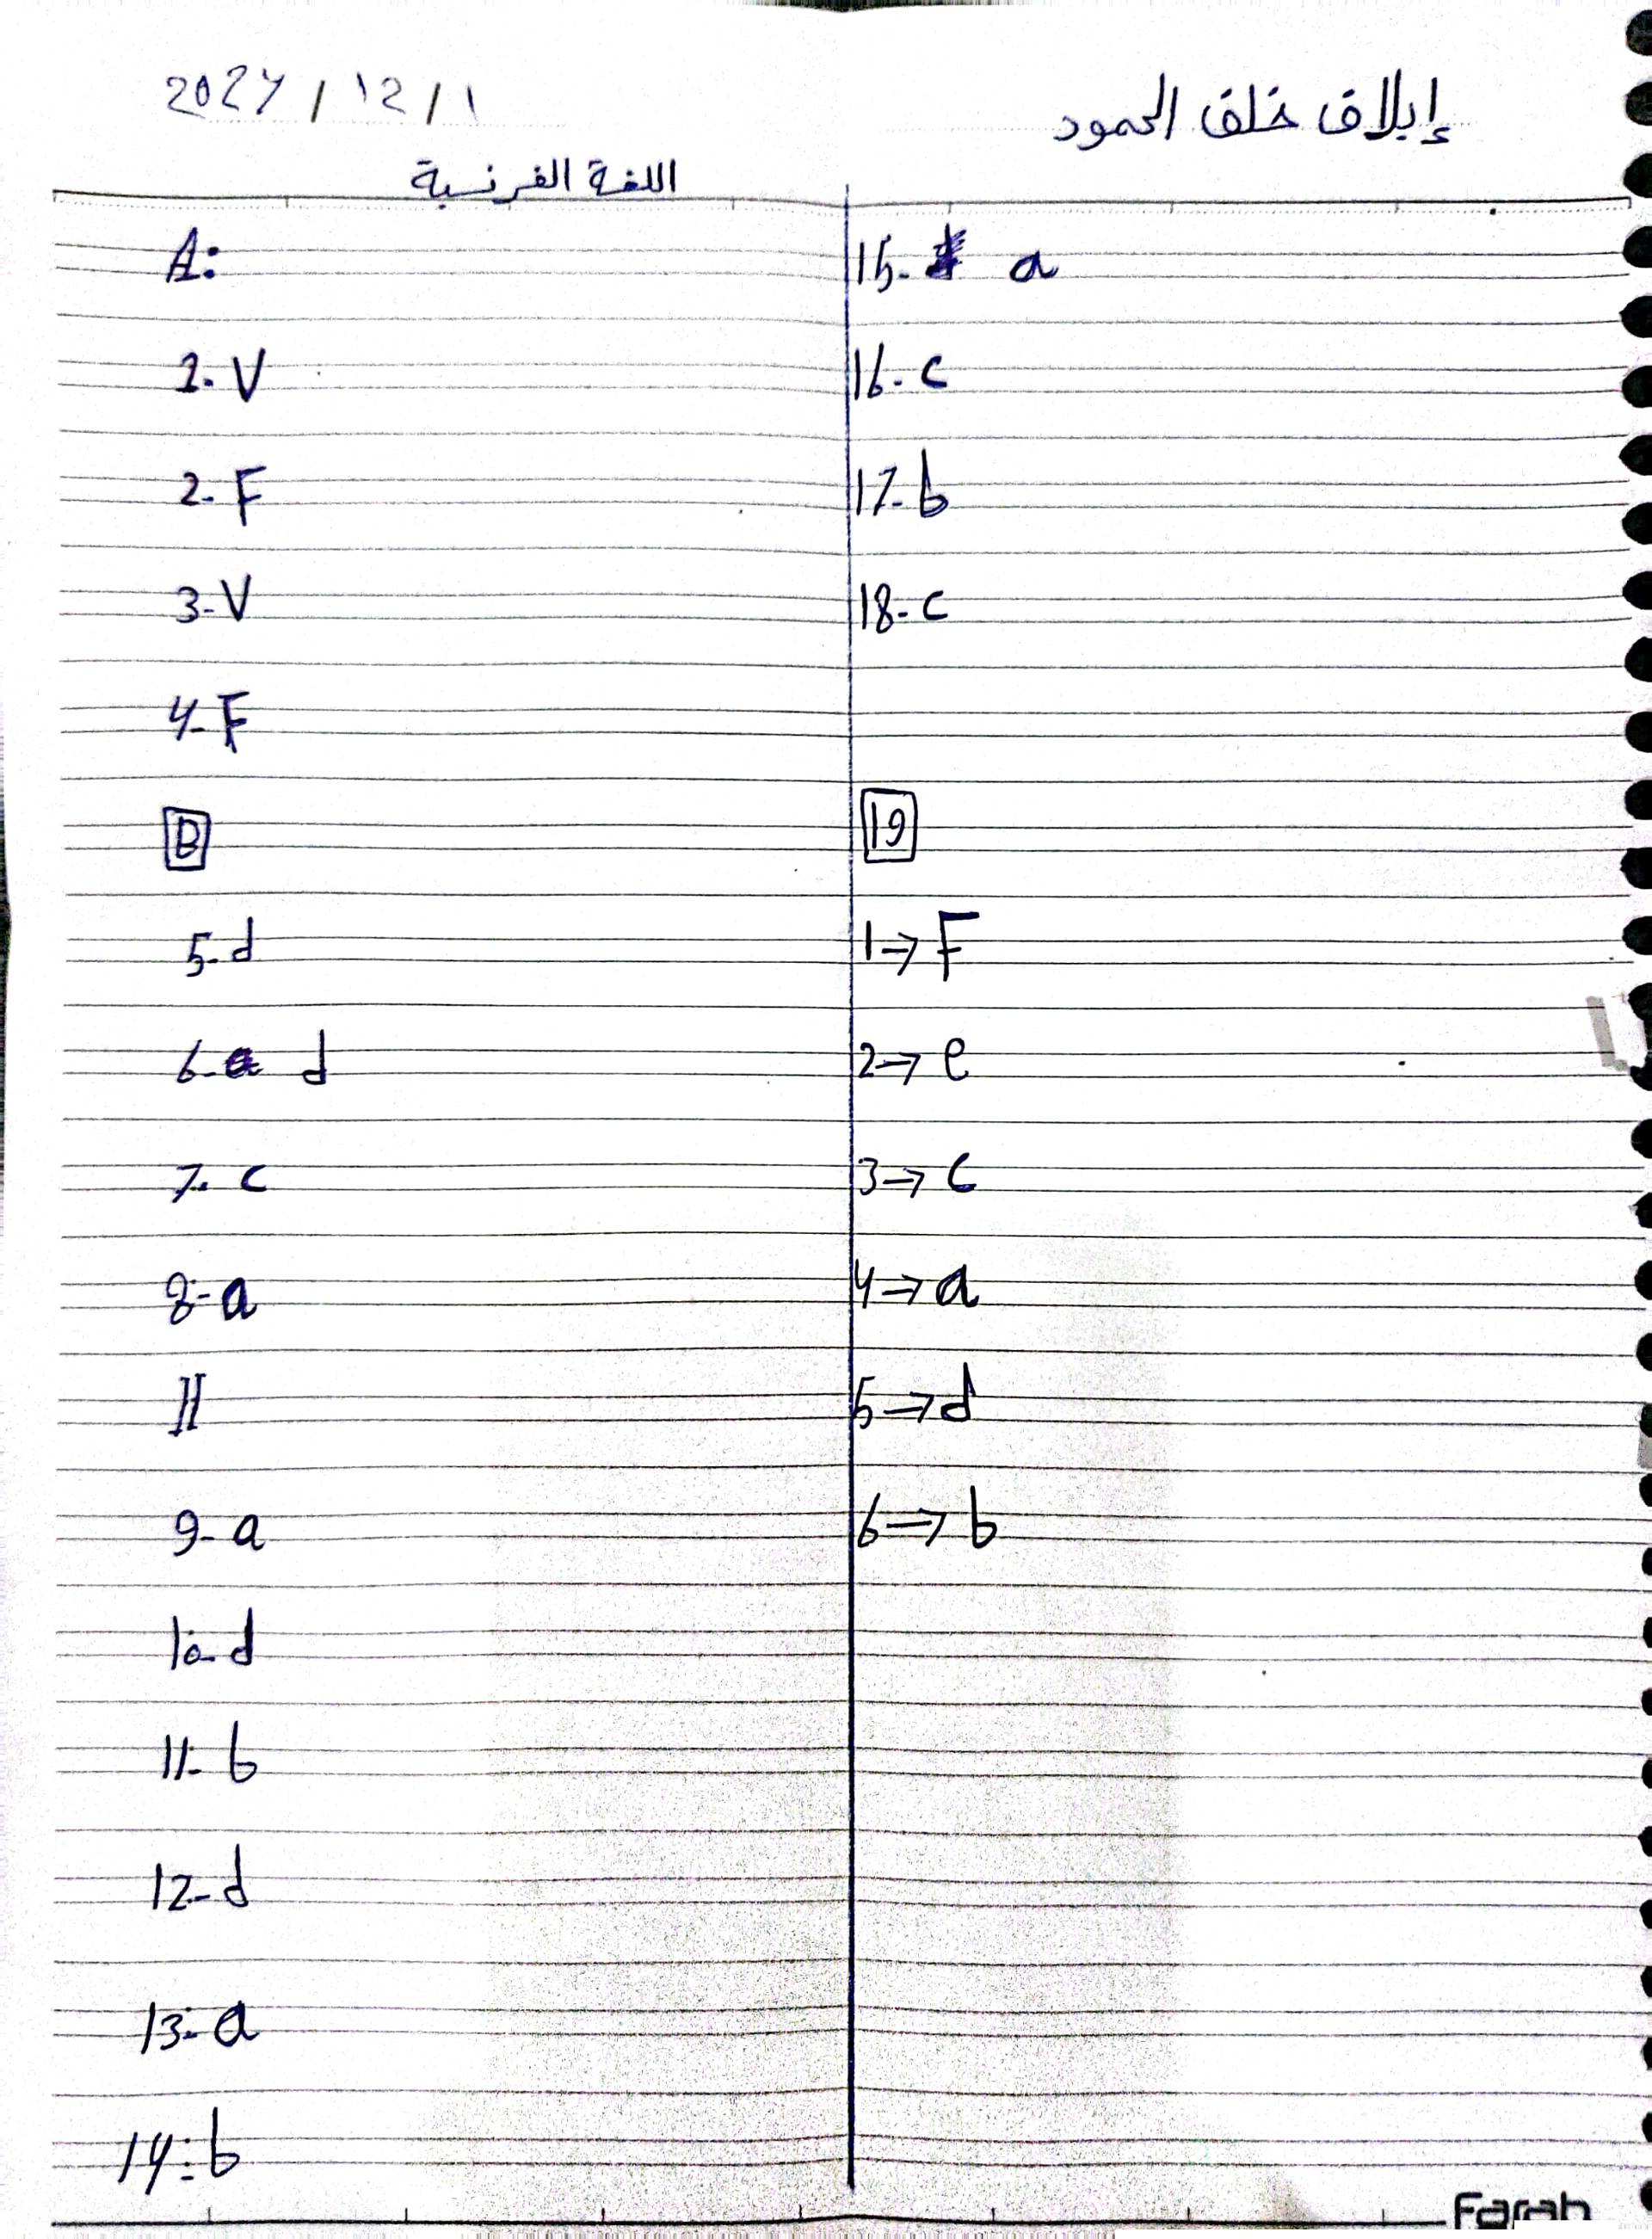 إيلاف خلف الحمود
2024/12/1
اللغة الفرنسية
A:
1. V
2- F
3- V
4- F
B
5- d
6- d
7. c
8- a
II
9- a
10- d
11- b
12- d
13- a
14: b
15- a
16- c
17- b
18- c
19
1→ F
2→ e
3→ c
4→ a
5→ d
6→ b
Farah